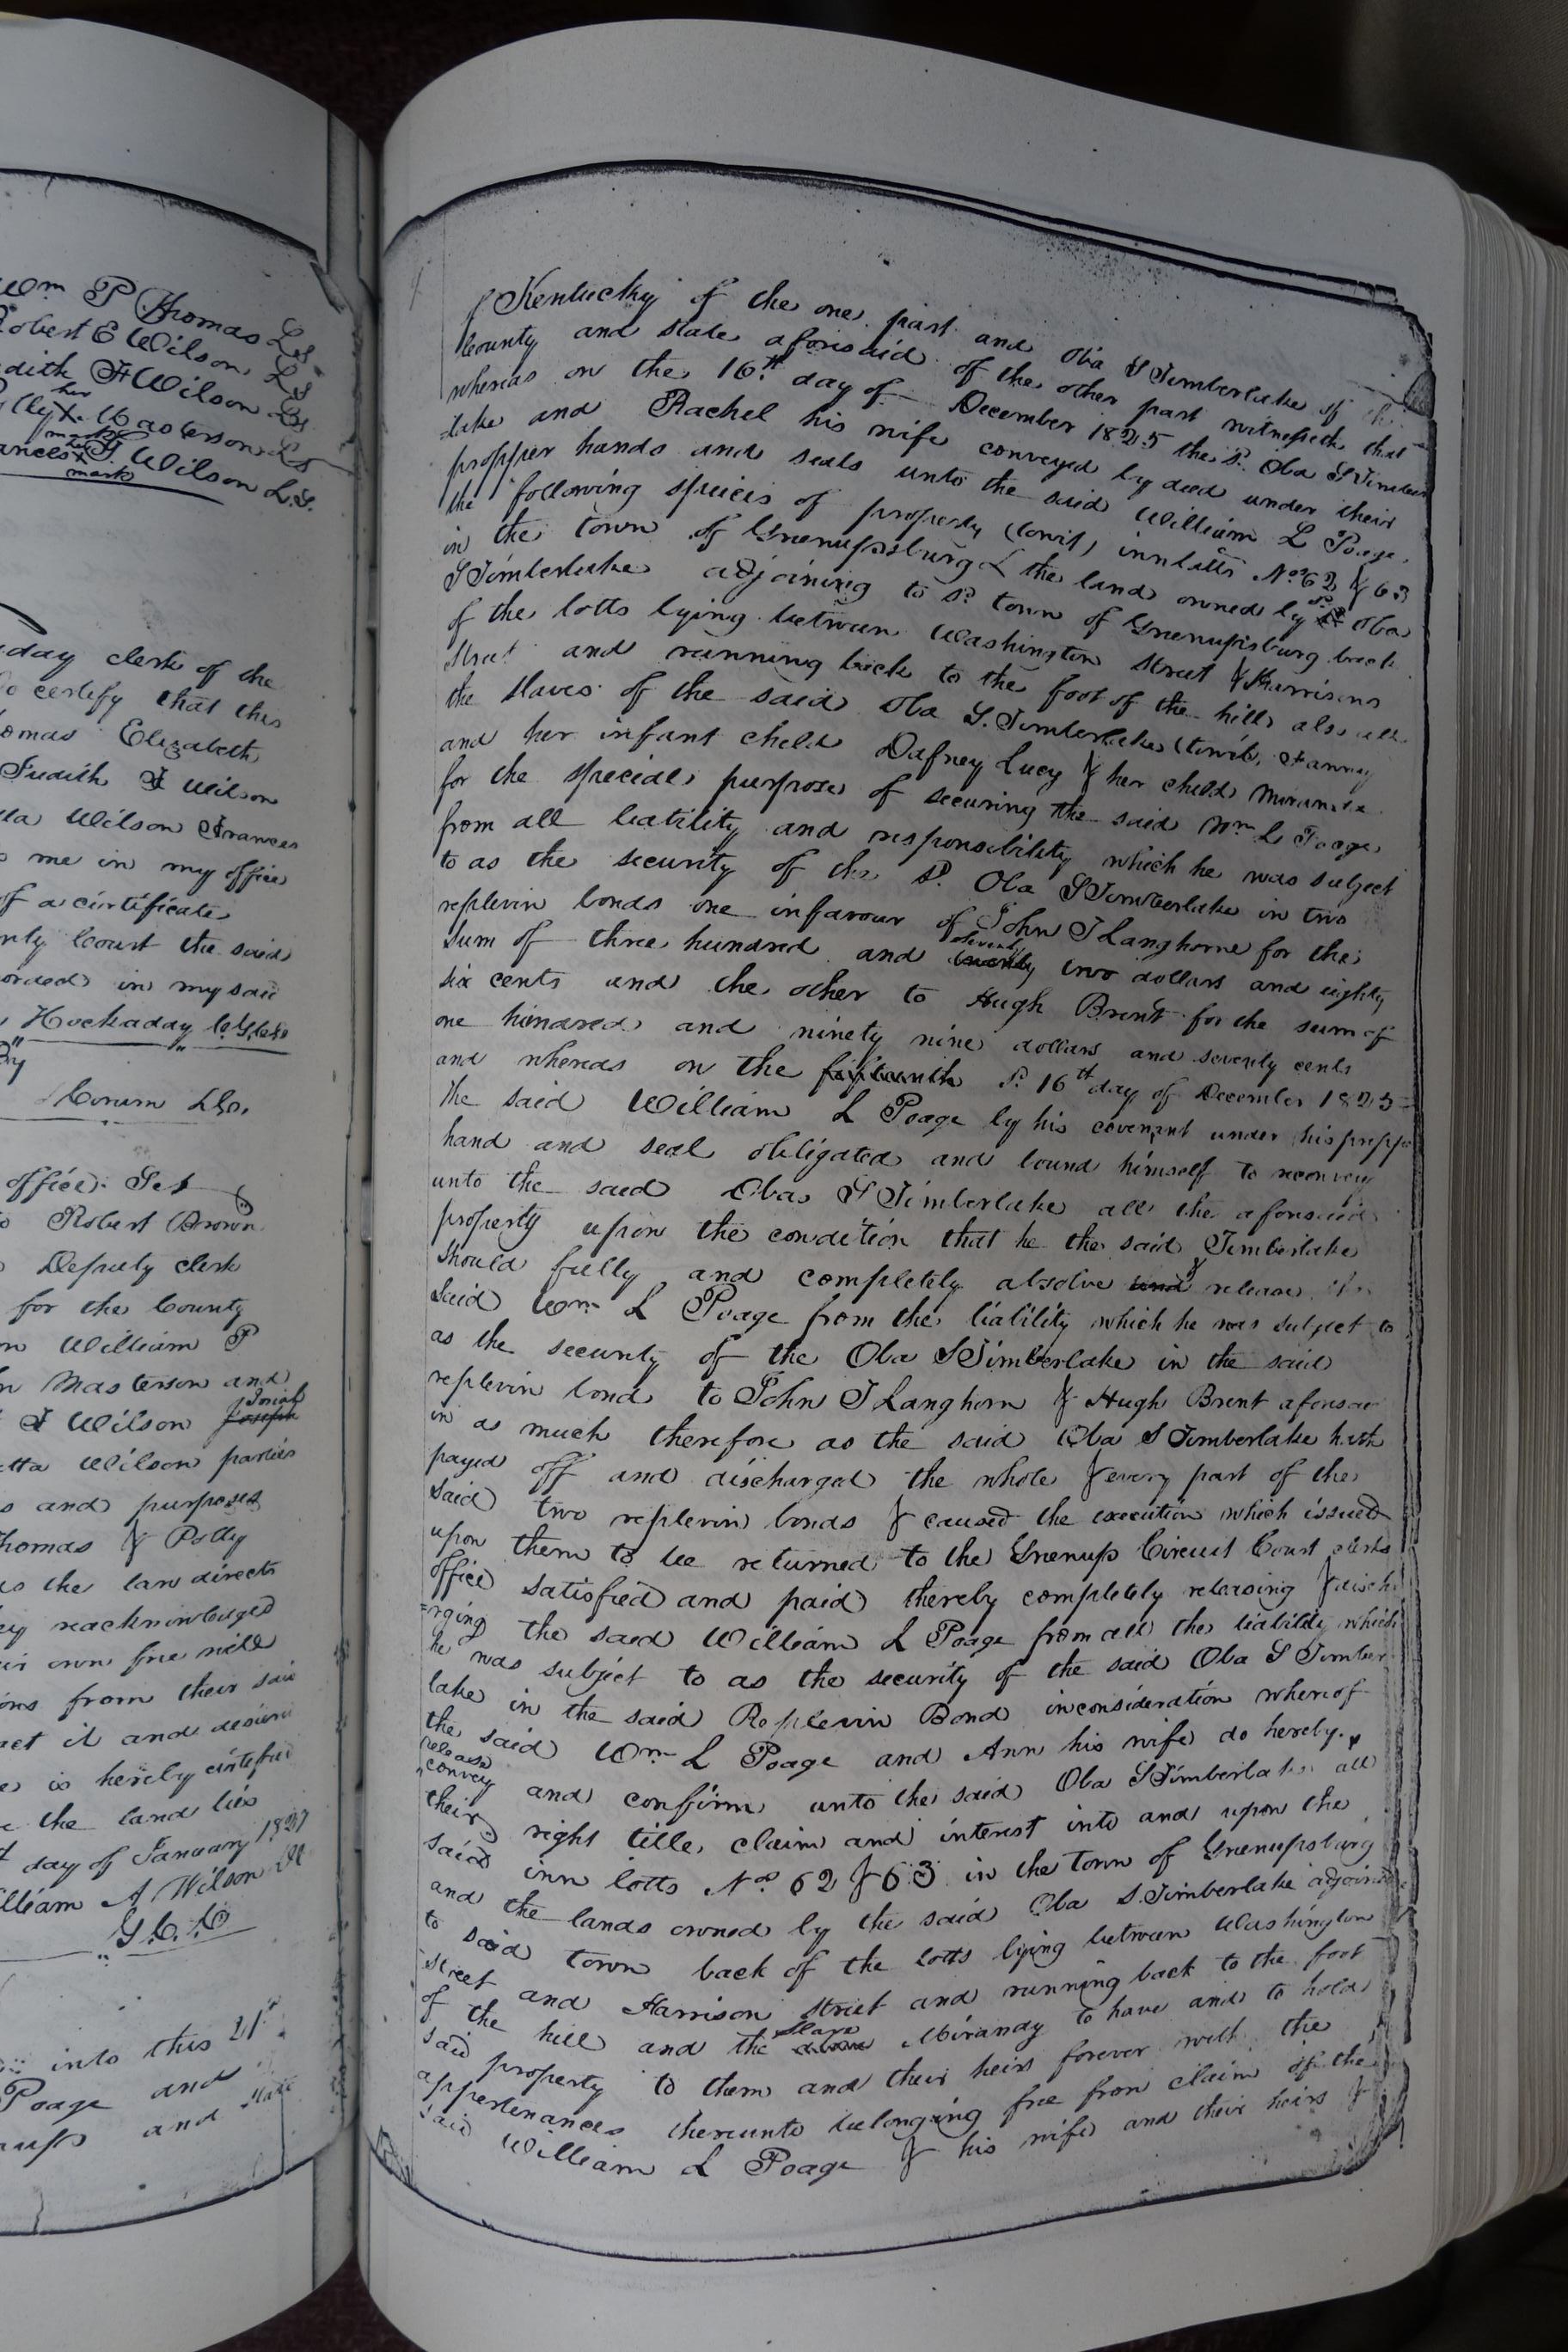 Wm P Thomas LS
Robert E Wilson LS
Judith F Wilson LS
her
Polly X Masterson LS
mark
her
Frances X F Wilson L.S.
mark
day clerk of the
do certify that this
omas Elizabeth
Judith F Wilson
lla Wilson Frances
o me in my office
of a certificate
nty Court the said
orded in my said
Hockaday
By
Corum
office. Set
to Robert Brown
Deputy clerk
for the County
William P
Masterson and
Josiah
F Wilson Joseph
etta Wilson parties
s and purposes
Thomas & Polly
as the law directs
reacknowledged
own free will
ons from their said
act it and desire
is hereby certified
the land lies
day of January 1827
William A Wilson
into this 21st
Poage and
and State
Kentucky of the one part and Oba S Timberlake of the
County and state aforesaid of the other part witnesseth that
whereas on the 16th day of December 1825 the sd. Oba S Timber
lake and Rachel his wife conveyed by deed under their
propper hands and seals unto the said William L Poage
the following species of property (towit) innlotts Nos 62 & 63
in the town of Greenupsburg & the land owned by sd Oba
S Timberlake adjoining to sd. town of Greenupsburg back
of the lotts lying between Washington street & Harrisons
street and running back to the foot of the hill also all
the slaves of the said Oba S. Timberlake (towit, Fanny
and her infant child Dafney Lucy & her child Miranda
for the special purpose of securing the said Wm L Poage
from all liability and responsibility which he was subject
to as the security of the sd. Oba S Timberlake in two
replevin bonds one infavour of John T Langhorne for the
sum of three hundred and twenty two dollars and eighty
six cents and the other to Hugh Brent for the sum of
one hundred and ninety nine dollars and seventy cents
and whereas on the fifteenth sd. 16th day of December 1825
the said William L Poage by his covenant under his propper
hand and seal obligated and bound himself to reconvey
unto the said Oba S Timberlake all the aforesaid
property upon the condition that he the said Timberlake
&
should fully and completely absolve and release the
said Wm L Poage from the liability which he was subject to
as the security of the Oba S Timberlake in the said
replevin bond to John T Langhorn & Hugh Brent aforesaid
in as much therefore as the said Oba S Timberlake hath
payed off and discharged the whole & every part of the
said two replevin bonds & caused the execution which issued
upon them to be returned to the Greenup Circuit Court clerks
office satisfied and paid thereby completely releasing & discha
=rging the said William L Poage from all the liability which
he was subject to as the security of the said Oba S Timber
lake in the said Replevin Bond inconsideration whereof
the said Wm L Poage and Ann his wife do hereby
release
convey and confirm unto the said Oba S Timberlake all
their right title claim and interest into and upon the
said inn lotts Nos 62 & 63 in the Town of Greenupsburg
and the lands owned by the said Oba S. Timberlake adjoining
to said town back of the lotts lying between Washington
street and Harrison street and running back to the foot
slave
of the hill and the Mirandy to have and to hold
said property to them and their heirs forever with the
appertenances thereunto belonging free from claim of the
said William L Poage & his wife and their heirs &